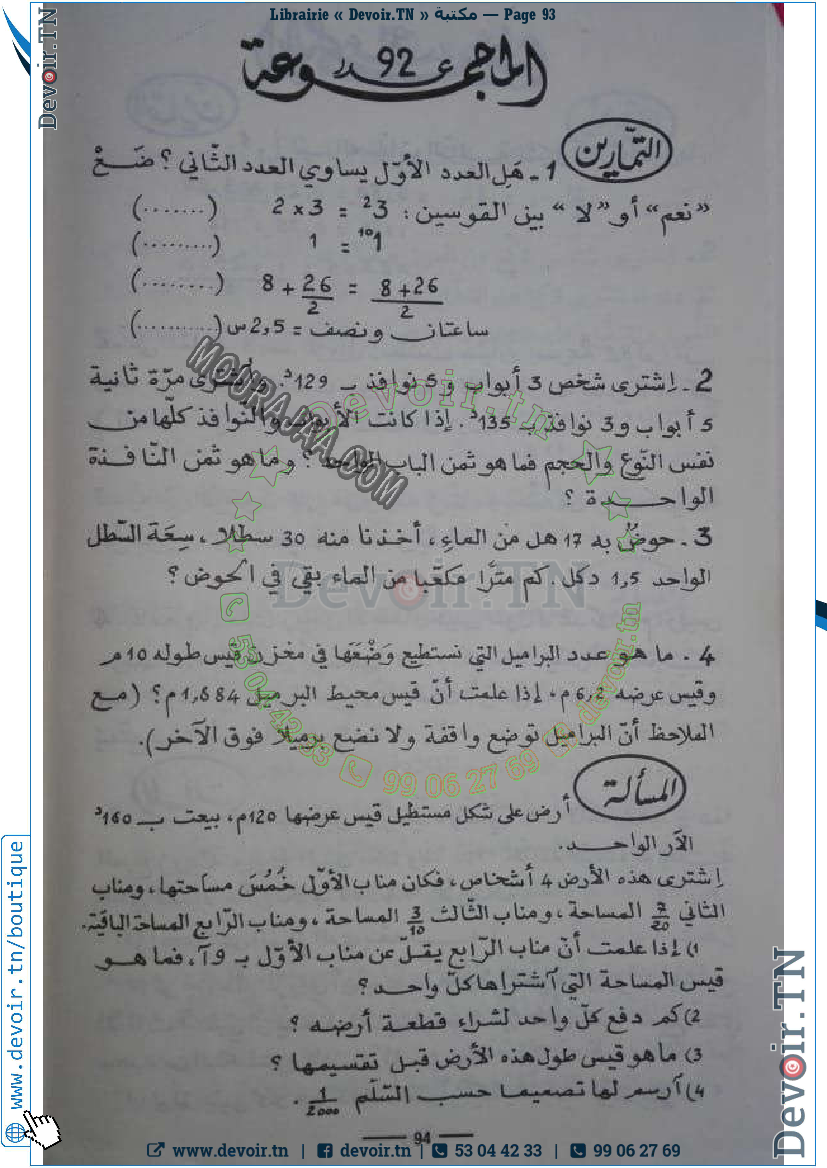 Librairie « Devoir.TN » مكتبة — Page 93
المجموعة عدد 92
التمارين
1 - هَل العدد الأوّل يساوي العدد الثّاني ؟ ضَعْ
«نعم» أو «لا» بين القوسين : 3² = 3 × 2 (........)
1¹⁰ = 1 (.........)
8+26/2 = 26/2 + 8 (.........)
ساعتان ونصف = 2,5 س (..........)
2 - اِشترى شخص 3 أبواب و 5 نوافذ بـ 129د. واشترى مرّة ثانية
5 أبواب و 3 نوافذ بـ 135د. إذا كانت الأبواب والنوافذ كلّها من
نفس النّوع والحجم فما هو ثمن الباب الواحد ؟ وما هو ثمن النّافذة
الواحدة ؟
3 - حوضٌ به 17 هل من الماءِ ، أخذنا منه 30 سطلا ، سِعَة السّطل
الواحد 1,5 دكل . كم مترًا مكعّبا من الماء بقي في الحوض ؟
4 . ما هو عدد البراميل التي نستطيع وَضْعَهَا في مخزن قيس طوله 10م
وقيس عرضه 6,2م ، إذا علمت أنّ قيس محيط البرميل 1,884م ؟ (مع
الملاحظ أنّ البراميل توضع واقفة ولا نضع برميلا فوق الآخر).
المسألة
أرض على شكل مستطيل قيس عرضها 120م ، بيعت بـ 160د
الآر الواحد.
اِشترى هذه الأرض 4 أشخاص ، فكان مناب الأوّل خُمُسَ مساحتها ، ومناب
الثاني 7/20 المساحة ، ومناب الثّالث 3/10 المساحة ، ومناب الرّابع المساحة الباقية.
1) إذا علمت أنّ مناب الرّابع يقلّ عن مناب الأوّل بـ 9آ ، فما هو
قيس المساحة التي آشتراها كلّ واحد ؟
2) كم دفع كلّ واحد لشراء قطعة أرضه ؟
3) ما هو قيس طول هذه الأرض قبل تقسيمها ؟
4) آرسم لها تصميما حسب السّلّم 1/2000 .
94
www.devoir.tn | devoir.tn | 53 04 42 33 | 99 06 27 69
Devoir.TN
MOURAJAA.COM
Devoir.tn
Devoir.TN
53 04 42 33
99 06 27 69
devoir.tn
www.devoir.tn/boutique
Devoir.TN